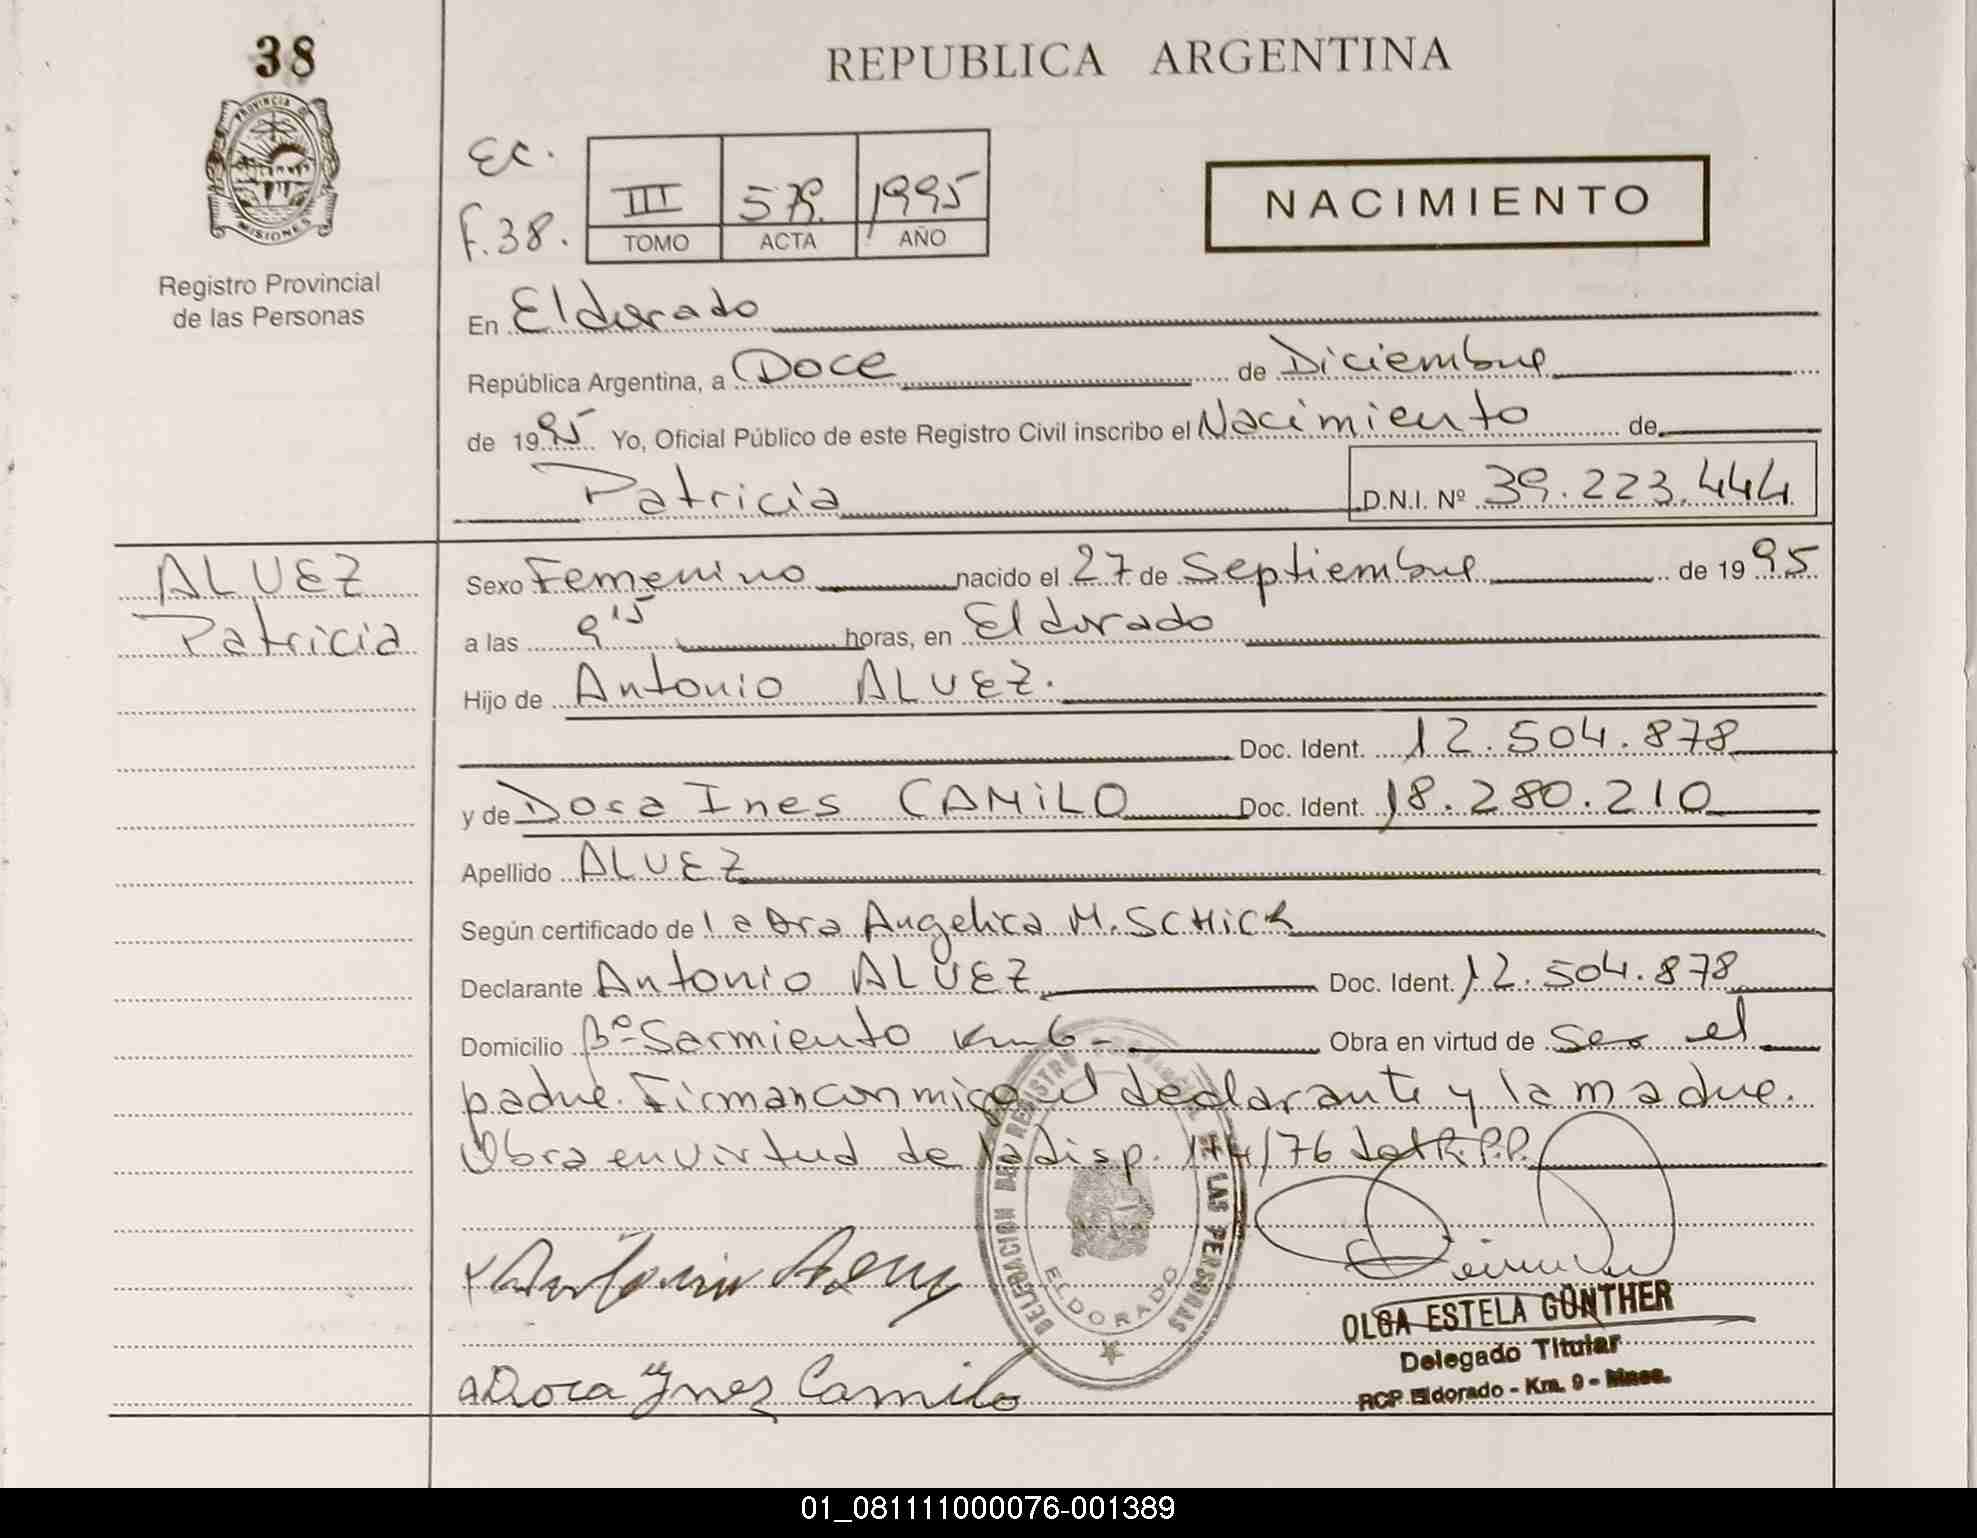 38
REPUBLICA ARGENTINA
PROVINCIA D
MISIONES
Registro Provincial
de las Personas
Ec.
F.38.
III 579. 1995
TOMO ACTA AÑO
NACIMIENTO
En Eldorado
República Argentina, a Doce de Diciembre
de 1995 Yo, Oficial Público de este Registro Civil inscribo el Nacimiento de
Patricia D.N.I. Nº 39.223.444
ALVEZ
Patricia
Sexo Femenino nacido el 27 de Septiembre de 1995
a las 9 15 horas, en Eldorado
Hijo de Antonio ALVEZ.
Doc. Ident. 12.504.878
y de Dora Ines CAMILO Doc. Ident. 18.280.210
Apellido ALVEZ
Según certificado de la Dra Angelica M. SCHICK
Declarante Antonio ALVEZ Doc. Ident. 12.504.878
Domicilio Bº Sarmiento Km 6- Obra en virtud de ser el
padre. Firman conmigo el declarante y la madre.
Obra en virtud de la disp. 174/76 del R.P.P.
DELEGACION DEL REGISTRO PROVINCIAL DE LAS PERSONAS
ELDORADO
Antonio
Dora Ynez Camilo
OLGA ESTELA GÜNTHER
Delegado Titular
RCP Eldorado - Km. 9 - Mnes.
01_081111000076-001389